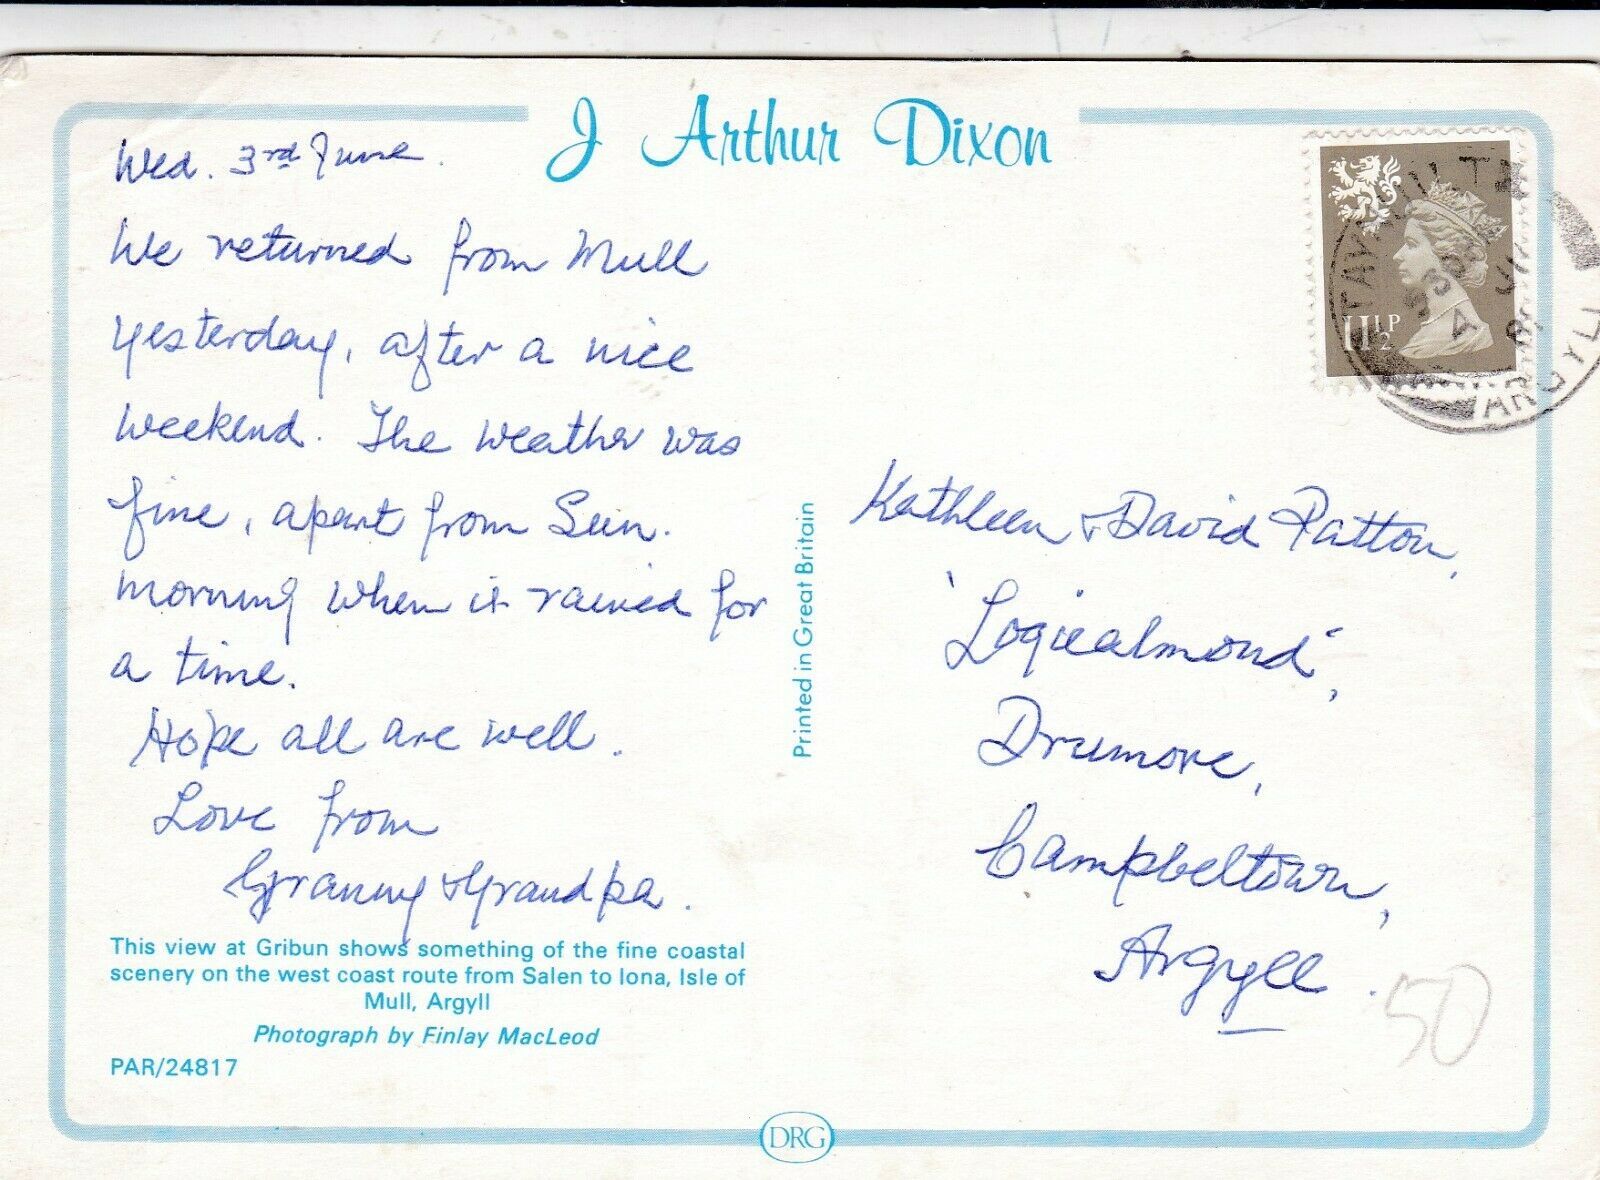 J Arthur Dixon
Wed. 3rd June.
We returned from Mull
yesterday, after a nice
weekend. The weather was
fine, apart from Sun.
morning when it rained for
a time.
Hope all are well.
Love from
Granny & Grandpa.
This view at Gribun shows something of the fine coastal
scenery on the west coast route from Salen to Iona, Isle of
Mull, Argyll
Photograph by Finlay MacLeod
PAR/24817
Printed in Great Britain
DRG
11½P
TAYNUILT
ARGYLL
Kathleen & David Patton,
'Logiealmond',
Drumore,
Campbeltown,
Argyll.
50